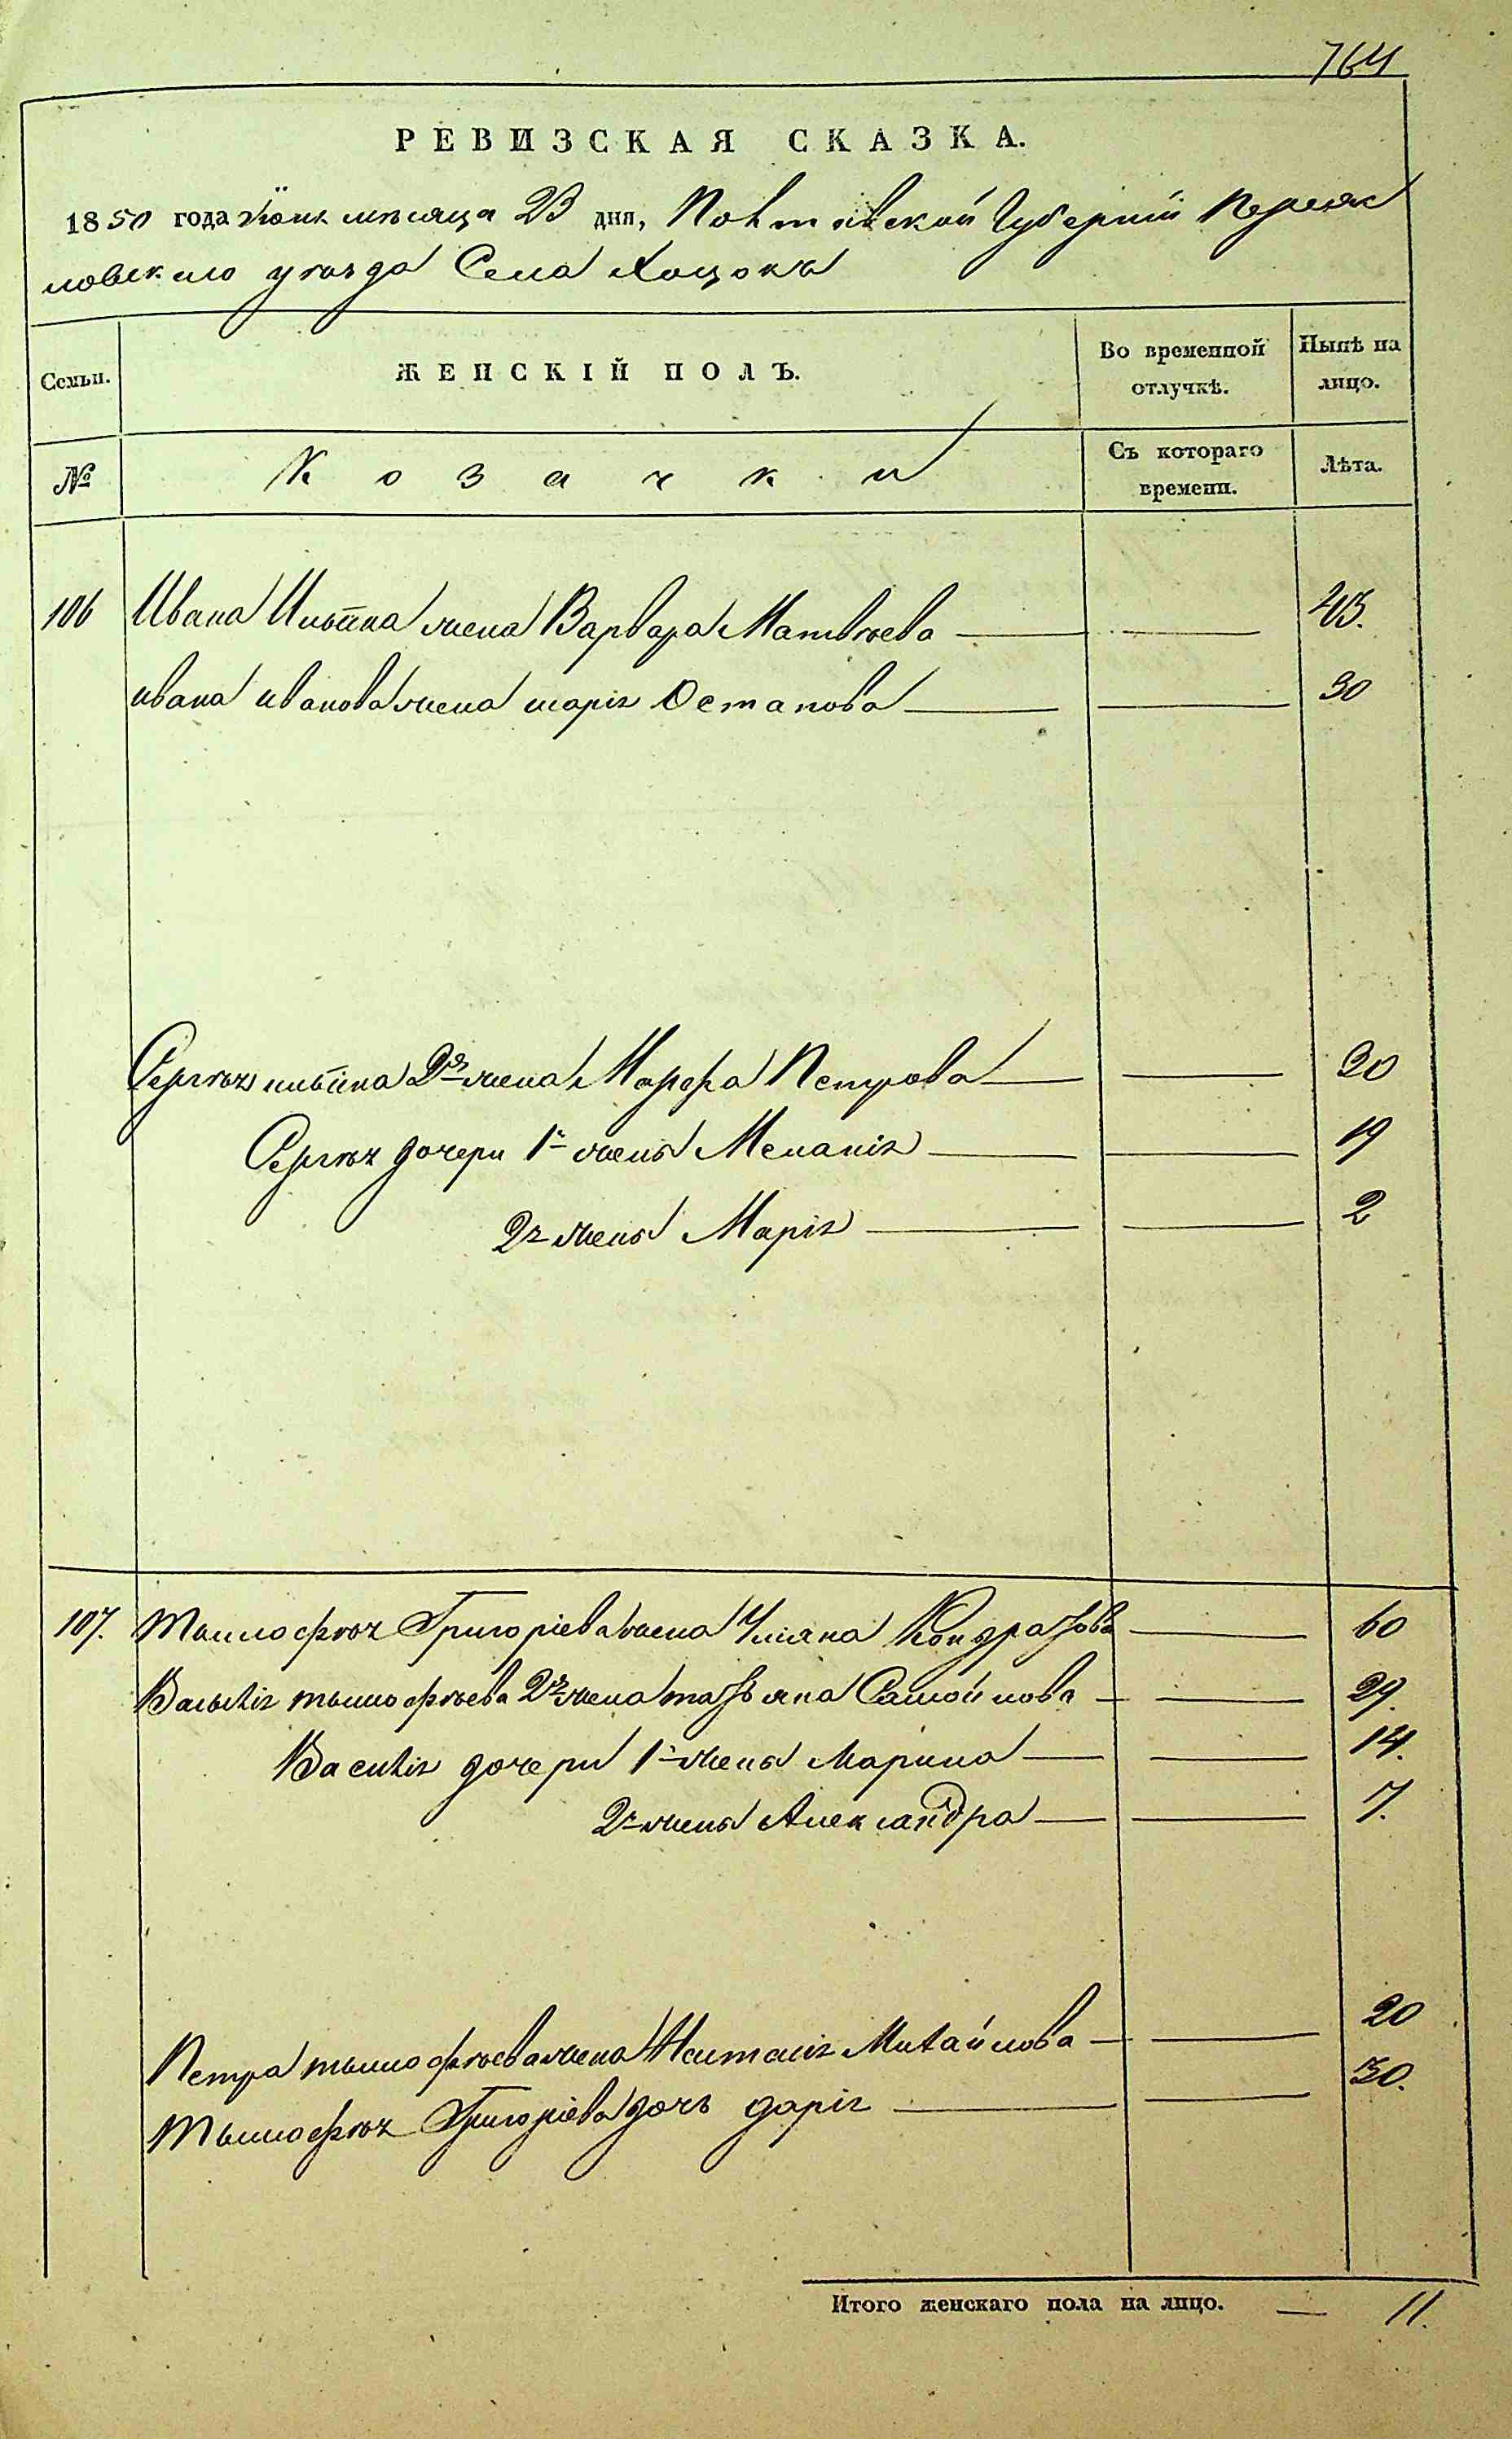 764
РЕВИЗСКАЯ СКАЗКА.
1850 года Июня месяца 23 дня, Полтавской Губернии Переяс
ловского уезда Села Хоцокъ
Семьи. ЖЕНСКІЙ ПОЛЪ. Во временной отлучкѣ. Нынѣ на лицо.
№ Козачки Съ котораго времени. Лѣта.
106 Ивана Ильина жена Варвара Матвѣева 45.
Ивана Иванова жена Марія Остапова 30
Сергѣя Ильина 2я жена Марфа Петрова 30
Сергѣя дочери 1й жены Меланія 19
2й жены Марія 2
107. Тимофѣя Григоріева жена Уліяна Кондратова 60
Василія Тимофѣева 2я жена Татьяна Самойлова 29.
Василія дочери 1й жены Марина 14.
2й жены Александра 7.
Петра Тимофѣева жена Наталія Михайлова 20
Тимофѣя Григоріева дочь Дарія 30.
Итого женскаго пола на лицо. — 11.